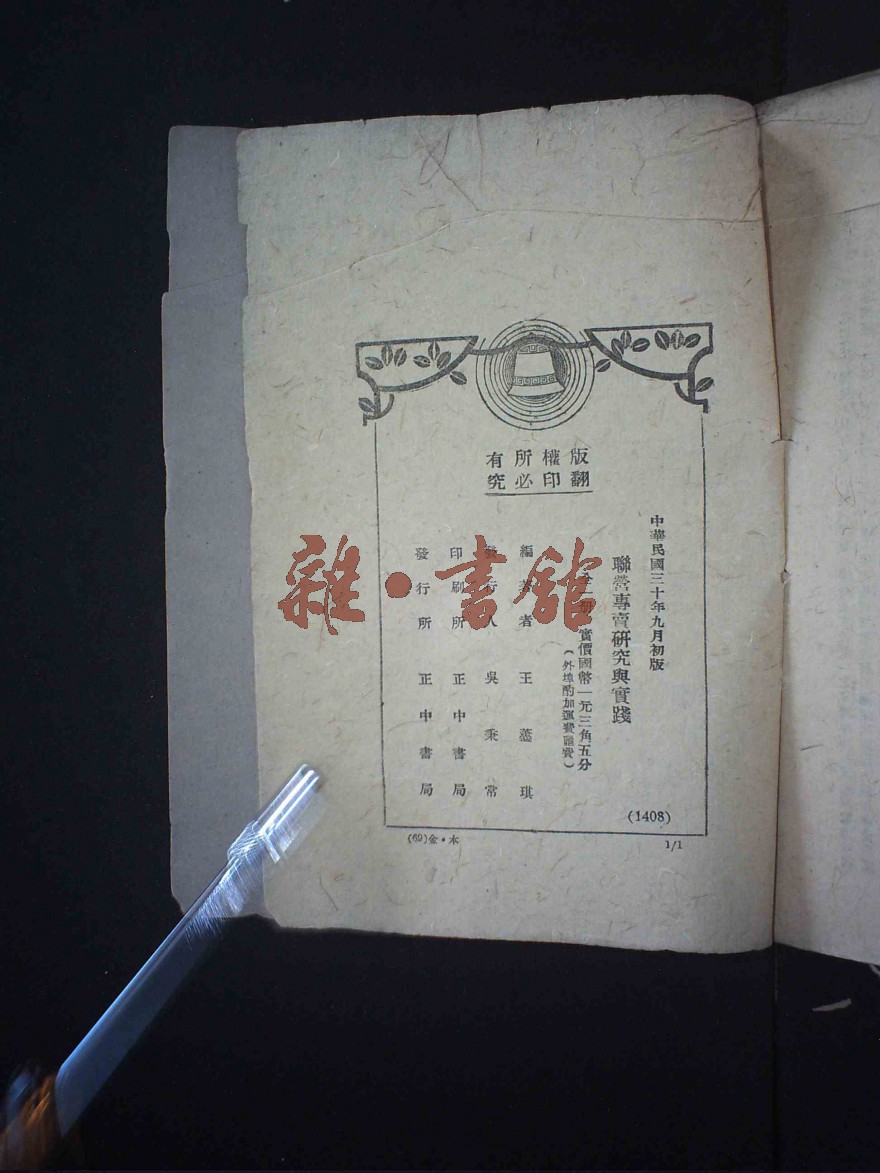 版權所有
翻印必究
中華民國三十年九月初版
聯營專賣研究與實踐
全一冊 實價國幣一元三角五分
(外埠酌加運費匯費)
編著者 王蘧琪
發行人 吳秉常
印刷所 正中書局
發行所 正中書局
(1408)
(69)金·本
1/1
雜·書館